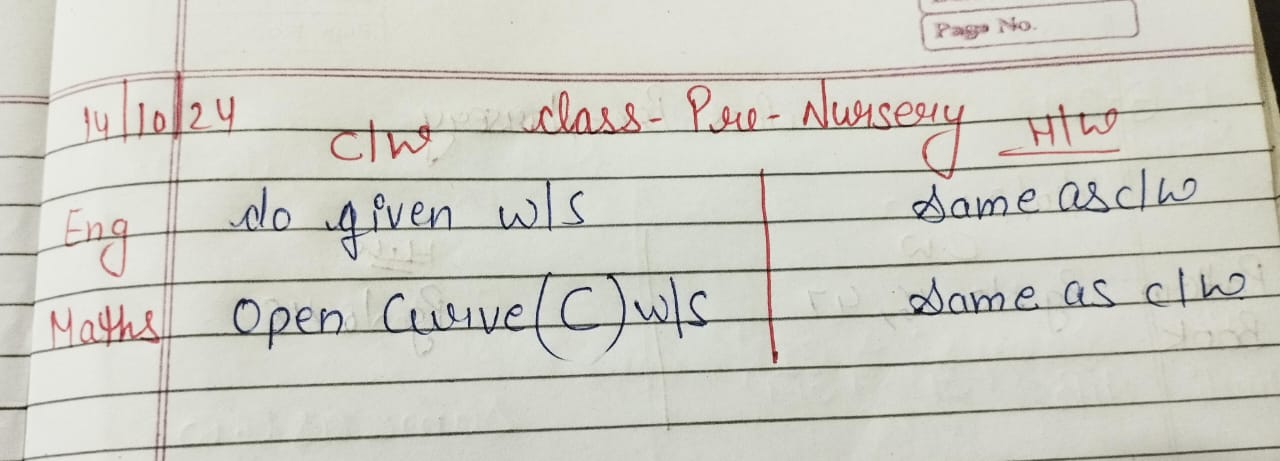 Page No.
14/10/24 class- Pre-Nursery
C/W H/W
Eng do given w/s Same as c/w
Maths Open Curve (C) w/s Same as c/w